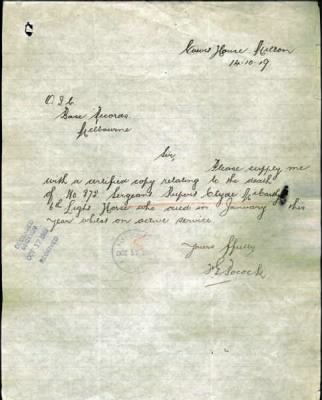 Court House Melton
14-10-19
O I/C
Base Records
Melbourne
Sir,
Please supply me
with a certified copy relating to the death
of No 872 Sergeant Rupert Clyde McCarthy
4th Light Horse who died in January this
year whilst on active service.
Yours ffully
Pocock